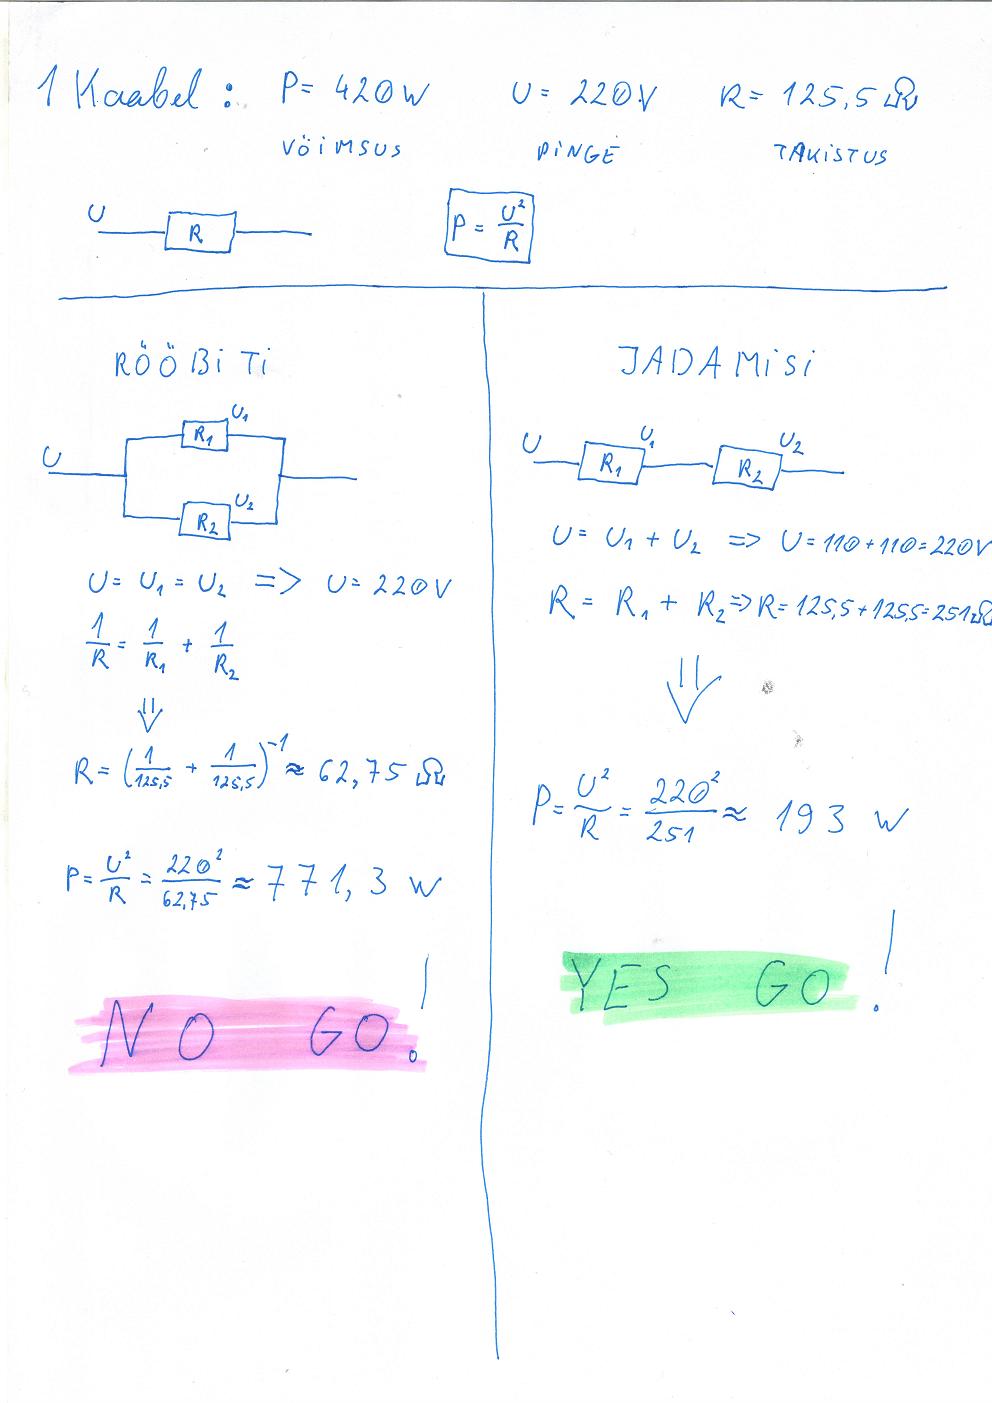 1 Kaabel: P= 420W U= 220V R= 125,5 Ω
VÕIMSUS PINGE TAKISTUS
U
R
P = U²/R
RÖÖBITI
U R₁ U₁
R₂ U₂
U= U₁ = U₂ => U= 220V
1/R = 1/R₁ + 1/R₂
⇓
R= (1/125,5 + 1/125,5)⁻¹ ≈ 62,75 Ω
P= U²/R = 220²/62,75 ≈ 771,3 W
NO GO!
JADAMISI
U R₁ U₁ R₂ U₂
U= U₁ + U₂ => U= 110+110=220V
R= R₁ + R₂ => R= 125,5+125,5=251Ω
⇓
P= U²/R = 220²/251 ≈ 193 W
YES GO!